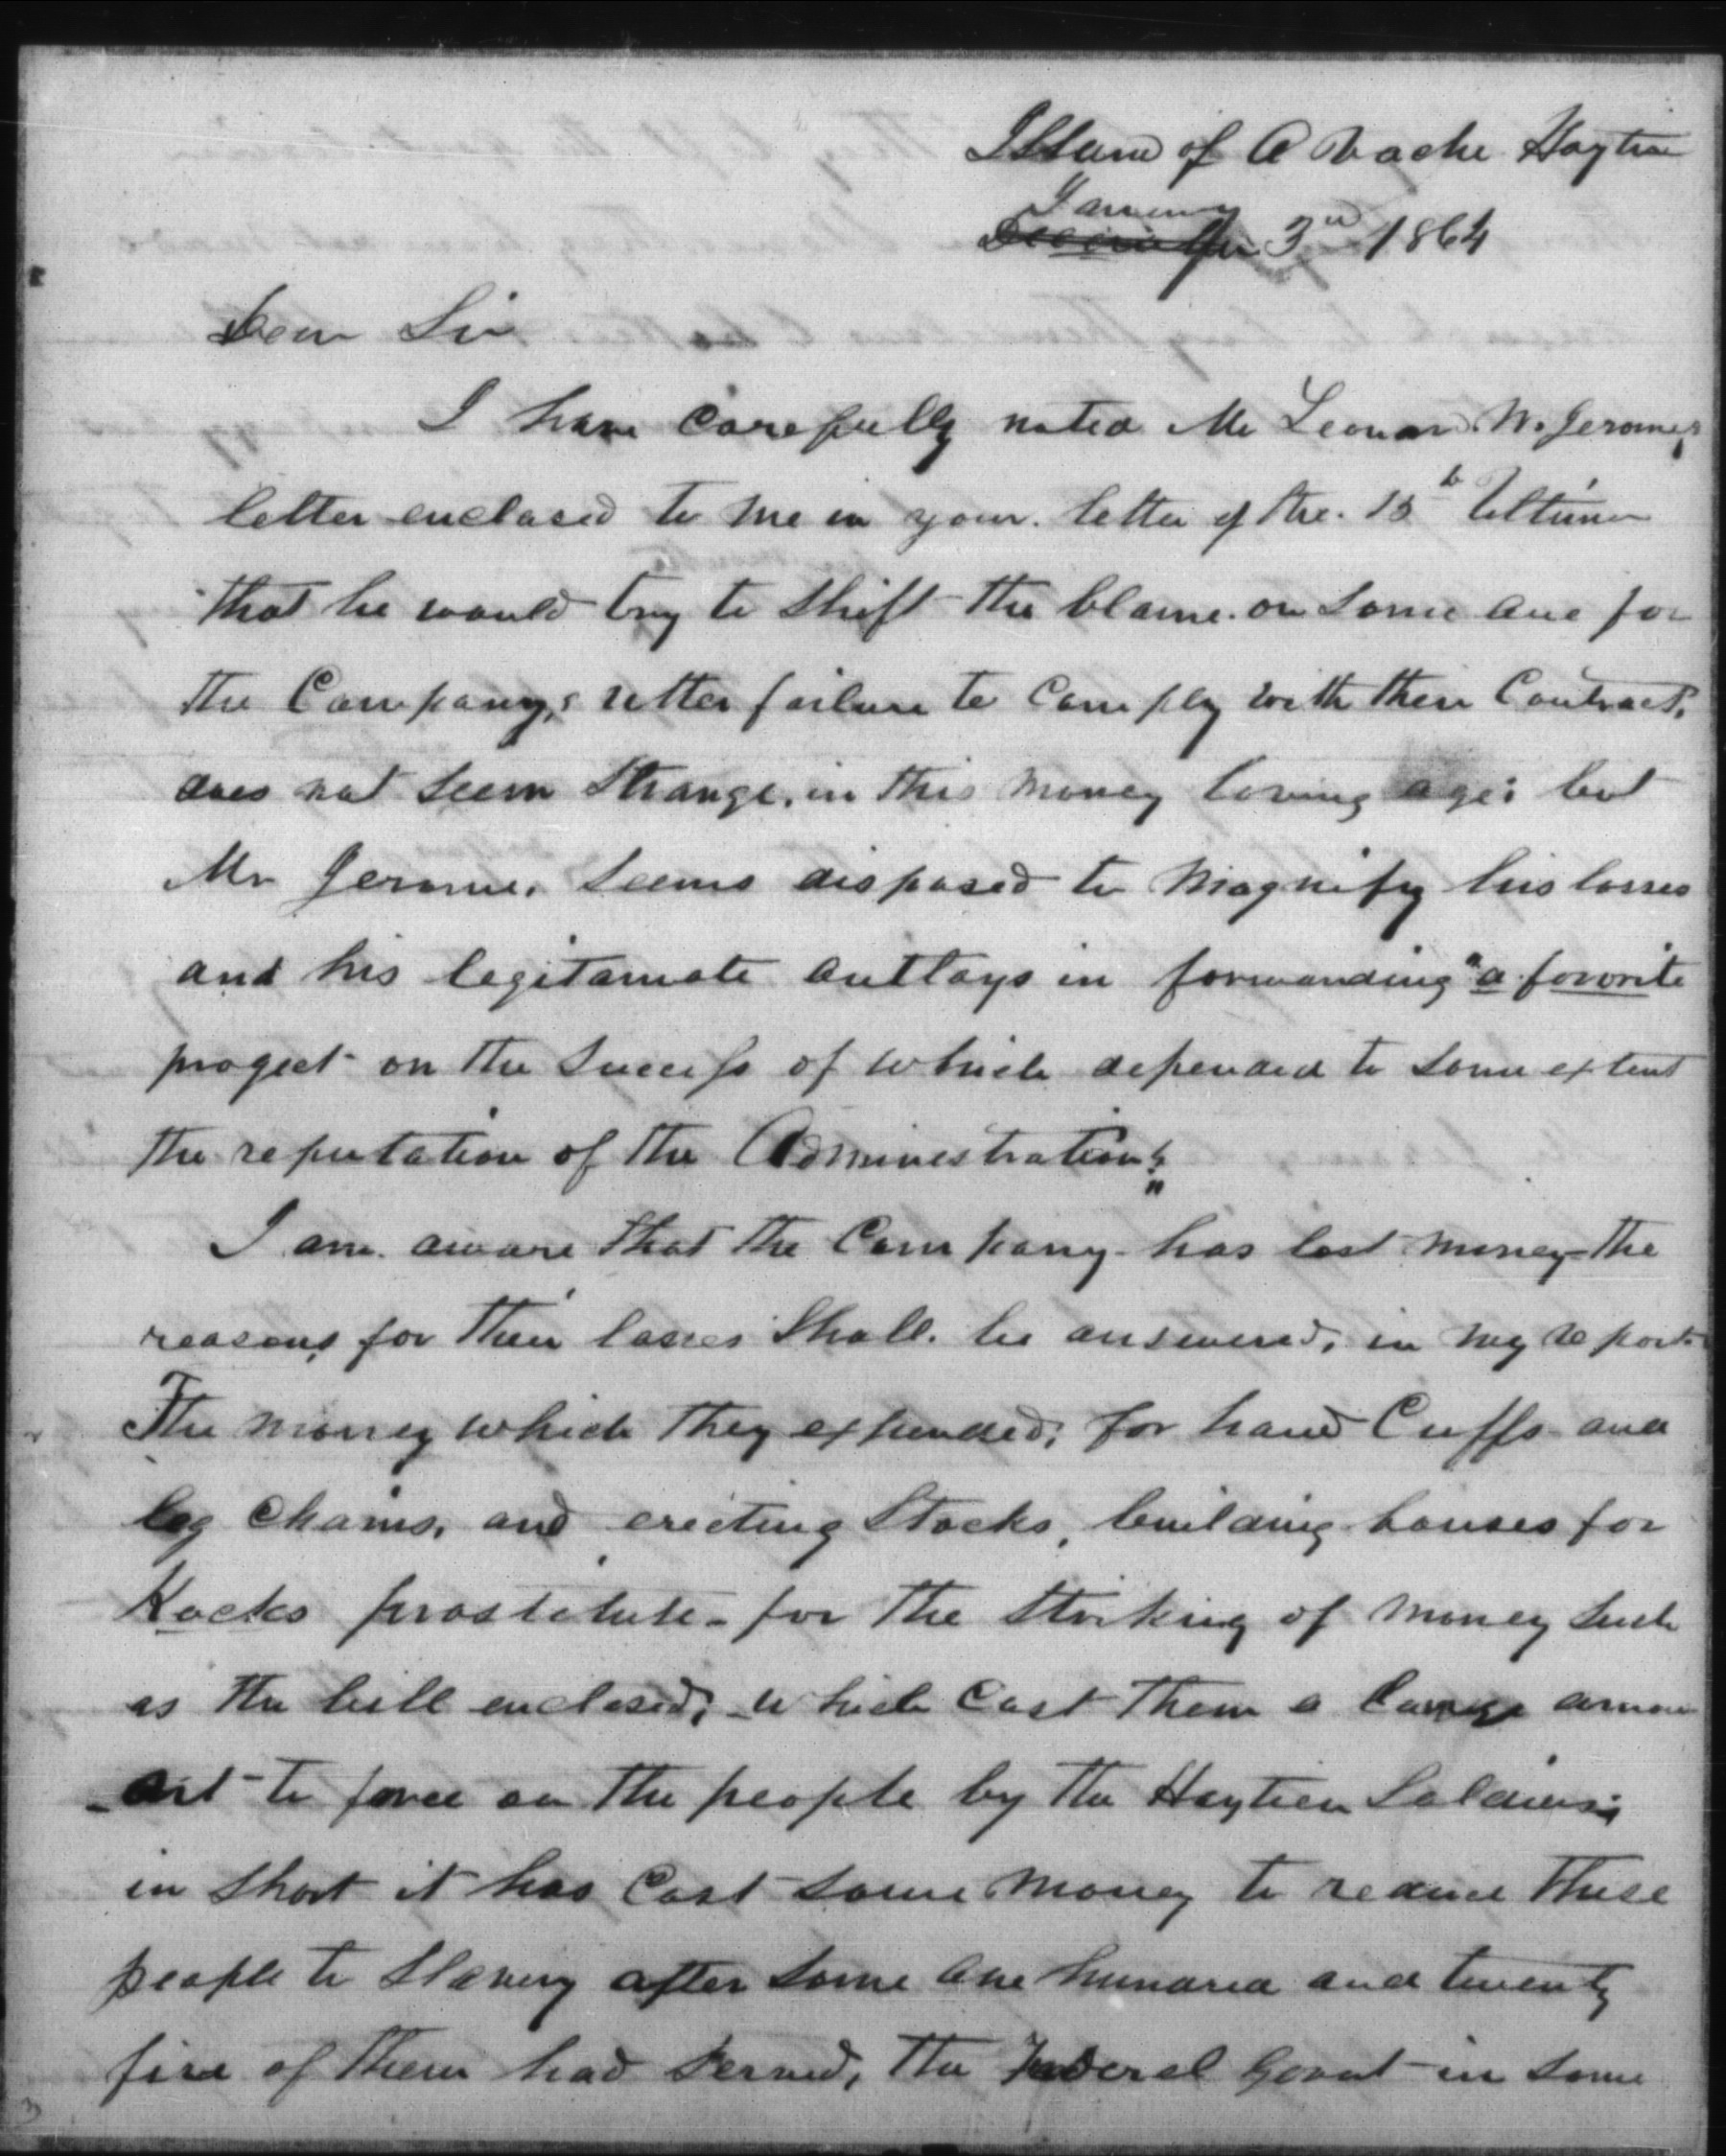 Island of A Vache Haytien
January
December 3rd 1864
Dear Sir
I have Carefully noted Mr Leonard W. Jeromes,
letter enclosed to me in your letter of the 15th Ultimo
that he would try to Shift the blame on Some one for
the Company,s utter failure to Comply with their Contract,
does not Seem Strange, in this money loving age; but
Mr Jerome, Seems disposed to Magnify his losses
and his legitamate outlays in forwarding "a favorite
progect on the Success of which depended to Some extent
the reputation of the Administration";
I am aware that the Company has lost money - the
reasons, for their losses Shall be answered, in my report
The money which they expended; for hand Cuffs and
leg Chains, and erecting Stocks, building houses for
Kocks prostitute - for the Striking of money Such
as the bill enclosed; which Cost them a large amou
-nt - to force on the people by the Haytien Soldiers;
in Short it has Cost Some money to reduce these
people to Slavery after Some One hundred and twenty
five of them had Served, the Federal Govnt - in Some